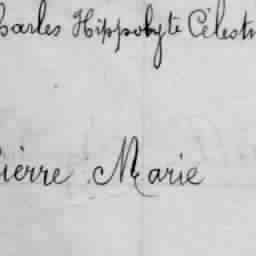 Charles Hippolyte Célest
Pièrre Marie